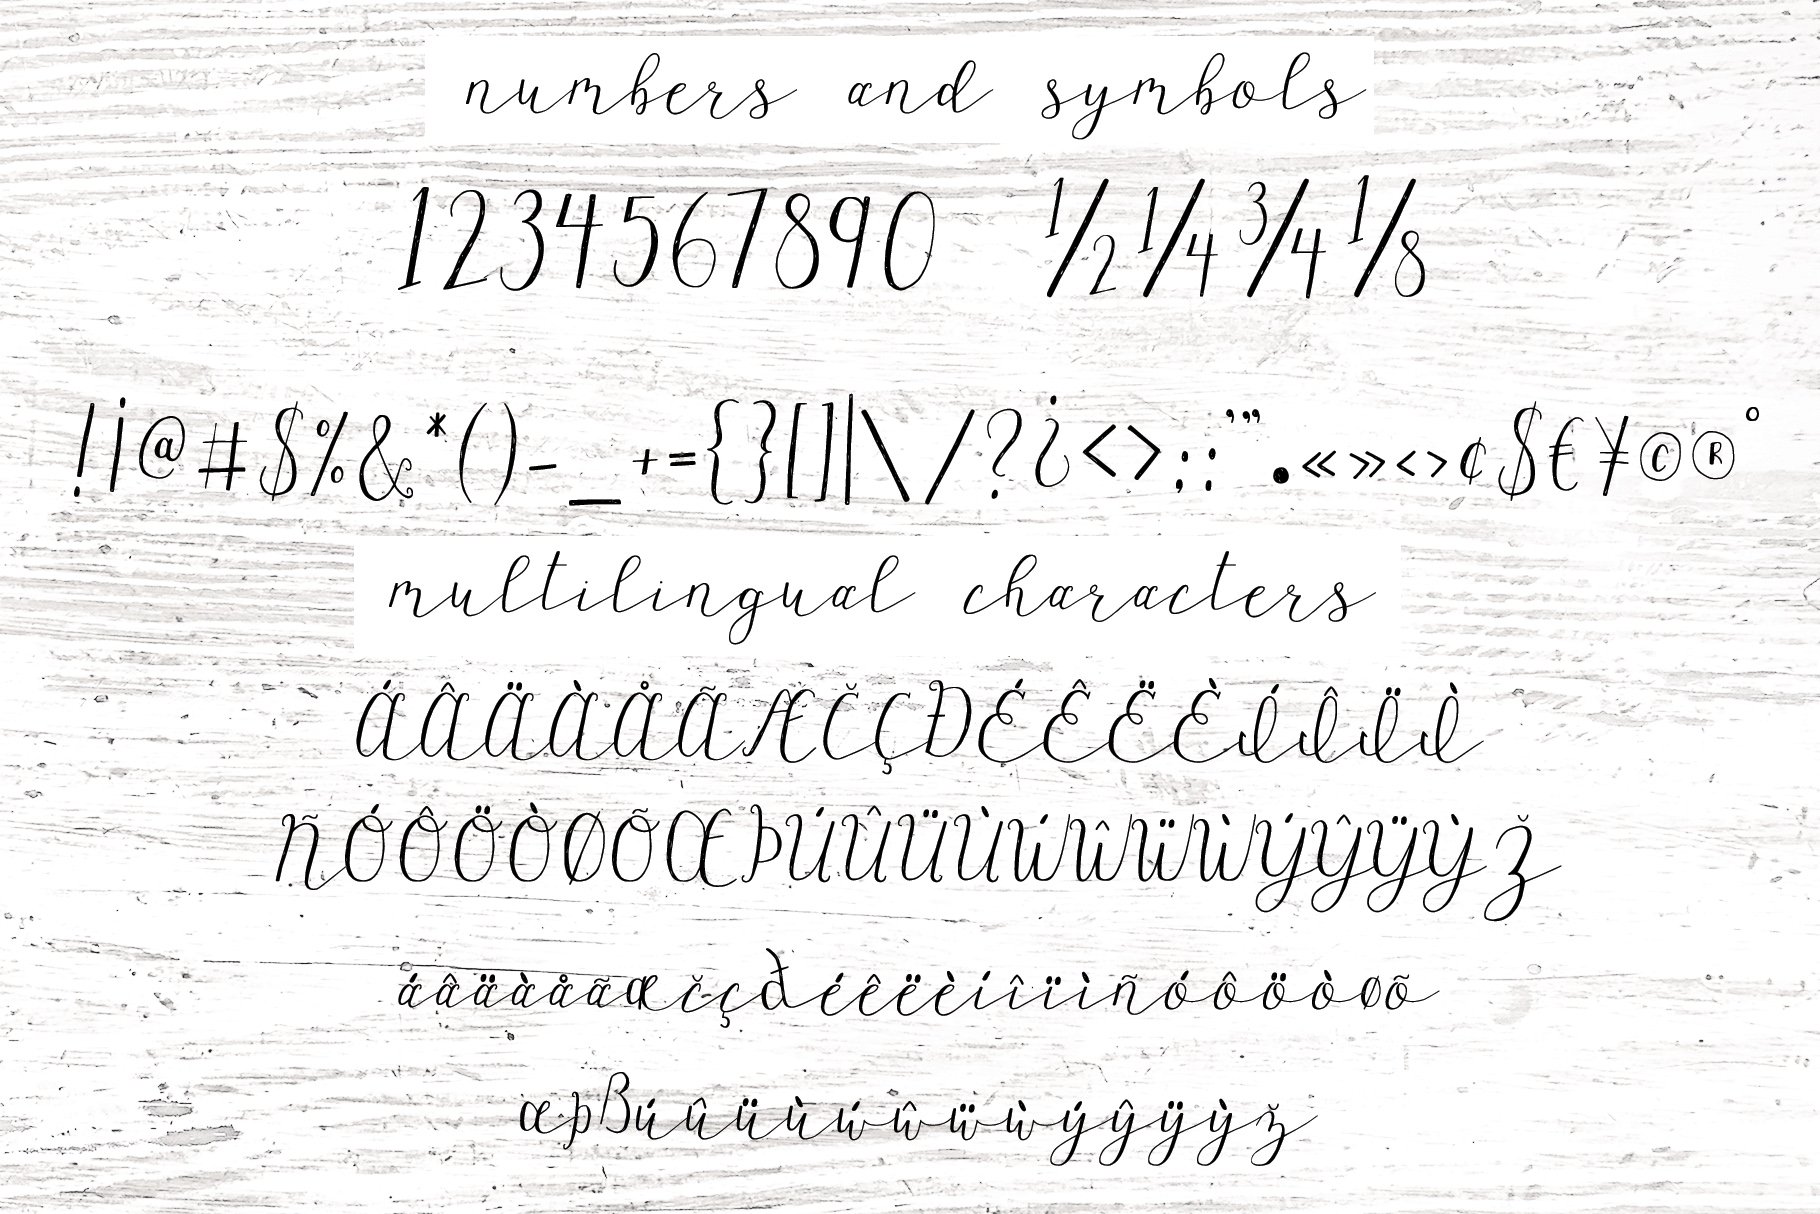 numbers and symbols
1234567890 ½ ¼ ¾ ⅛
!¡@#$%&*()-_+={}[]|\/?¿<>;:'"•«»‹›¢$€¥©®°
multilingual characters
ÁÂÄÀÅÃÆČÇÐÉÊËÈÍÎÏÌ
ÑÓÔÖÒØÕŒÞÚÛÜÙẂŴẄẀÝŶŸỲŽ
áâäàåãæčçðéêëèíîïìñóôöòøõ
œþßúûüùẃŵẅẁýŷÿỳž